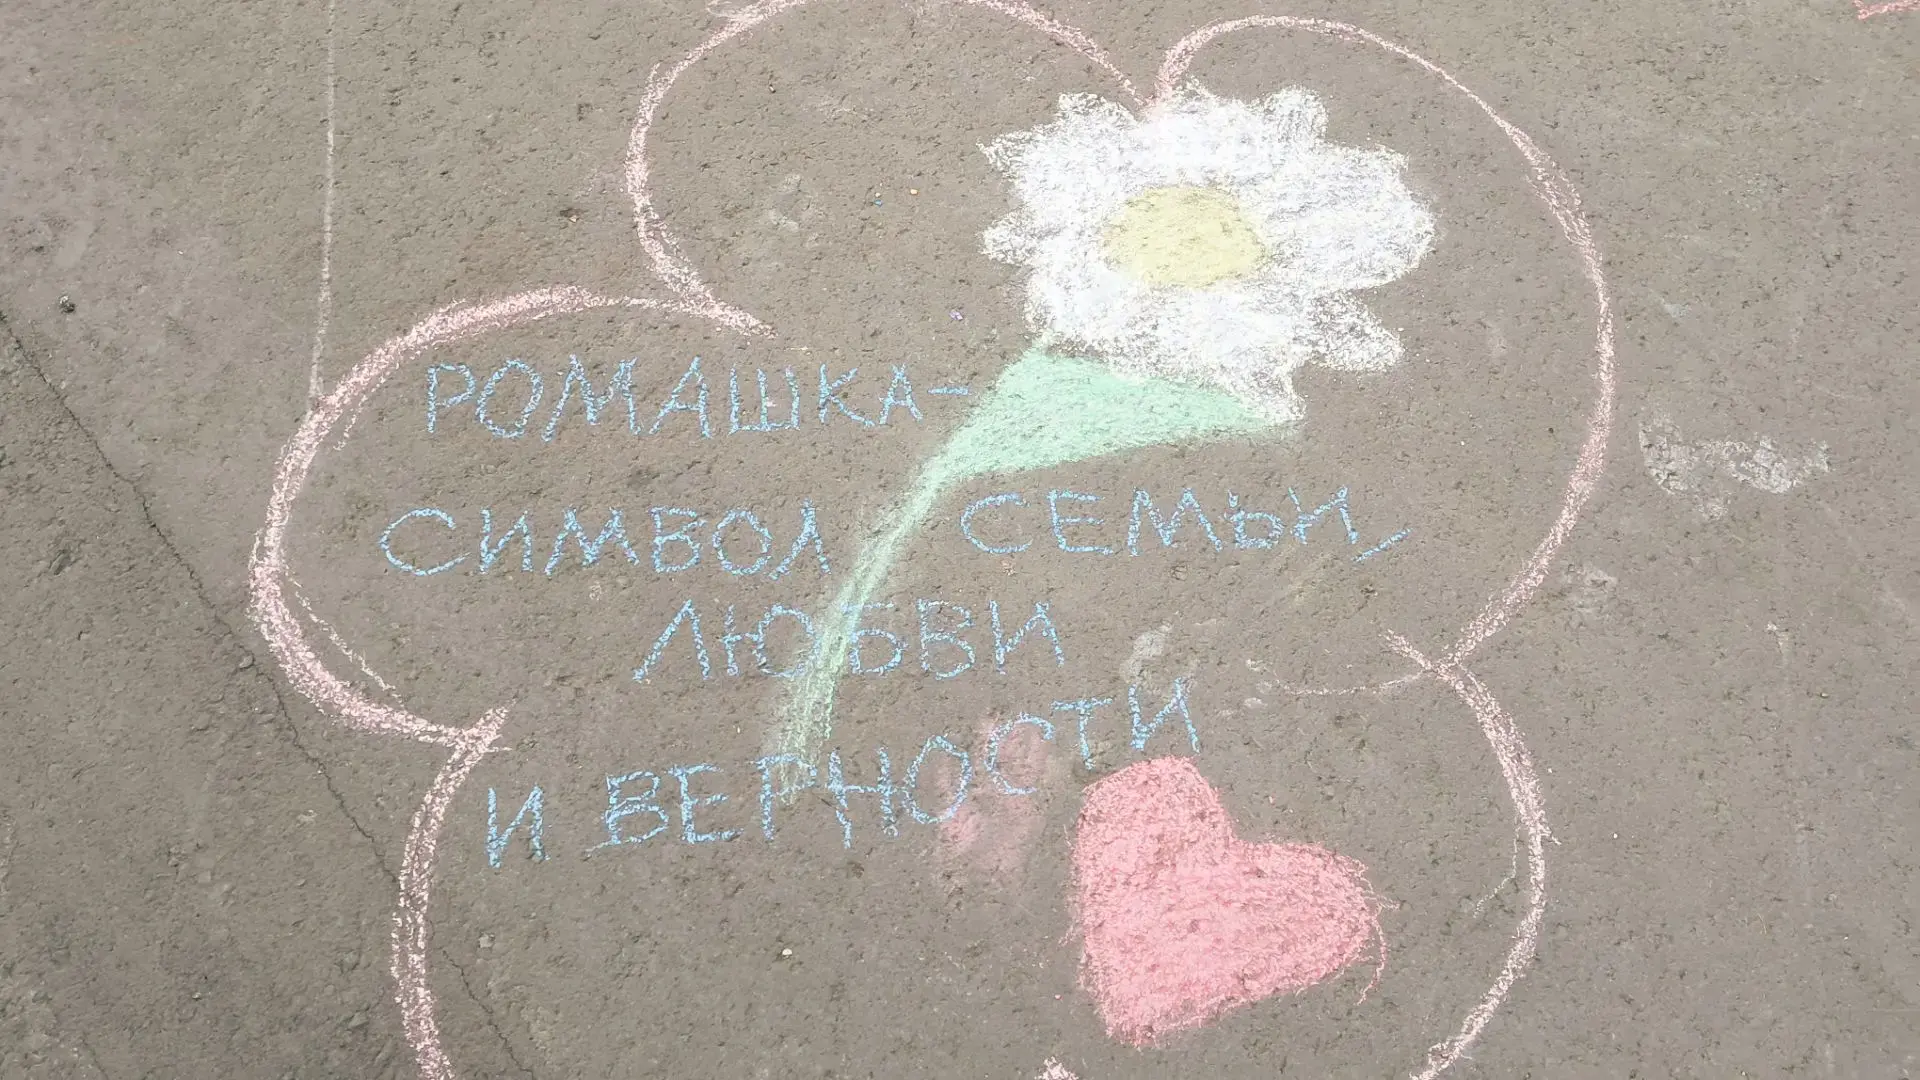 РОМАШКА-
СИМВОЛ СЕМЬИ,
ЛЮБВИ
И ВЕРНОСТИ